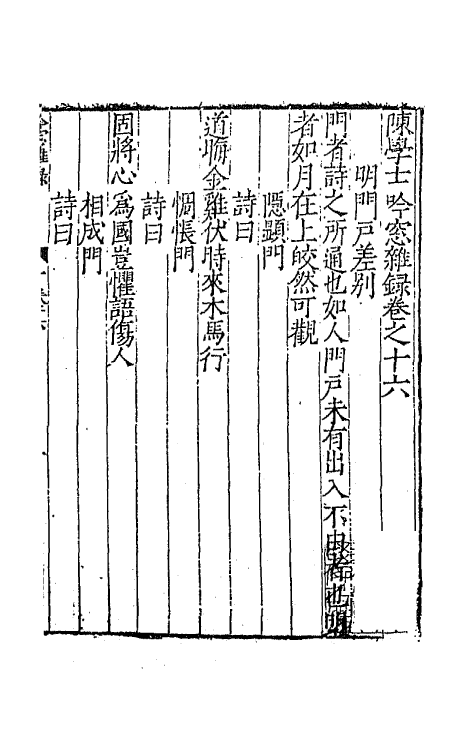 陳學士吟窓雜録卷之十六
明門戸差别
門者詩之所通也如人門戸未有出入不由者也明
者如月在上皎然可觀
隱顯門
詩曰
道塲金雞伏時來木馬行
惆悵門
詩曰
固將心爲國豈懼語傷人
相成門
詩曰